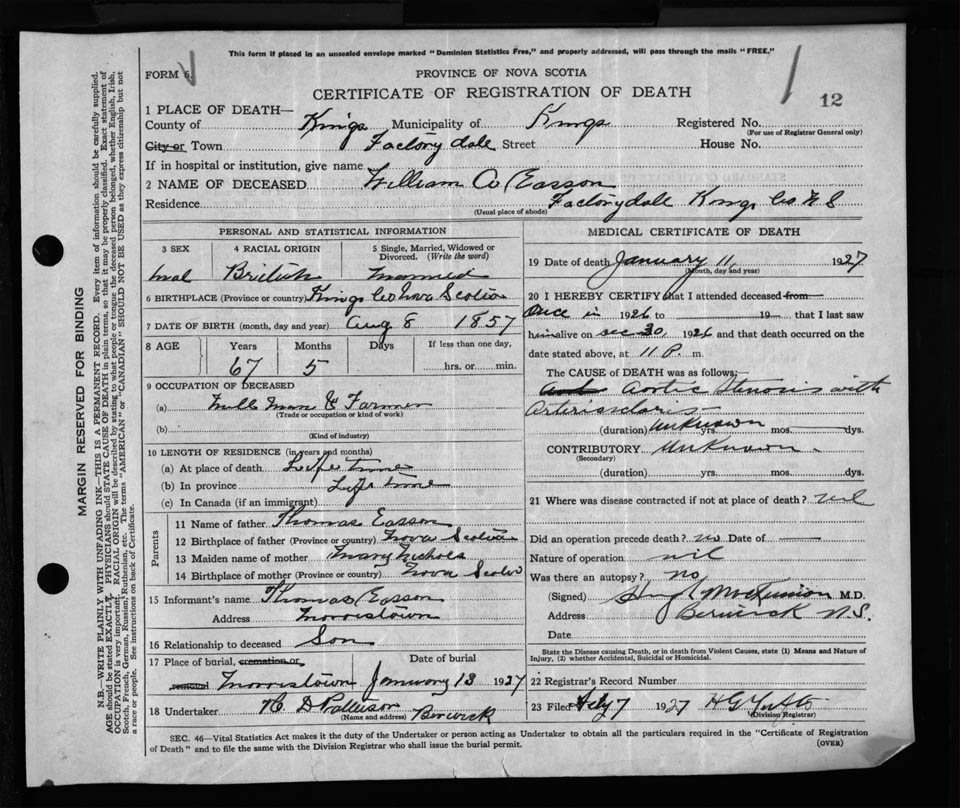 This form if placed in an unsealed envelope marked "Dominion Statistics Free," and properly addressed, will pass through the mails "FREE."
FORM 6.
PROVINCE OF NOVA SCOTIA
CERTIFICATE OF REGISTRATION OF DEATH
12
1 PLACE OF DEATH—
County of Kings Municipality of Kings Registered No.
(For use of Registrar General only)
City or Town Factorydale Street House No.
If in hospital or institution, give name
2 NAME OF DECEASED William A Easson
Residence Factorydale Kings Co N S
(Usual place of abode)
PERSONAL AND STATISTICAL INFORMATION
3 SEX 4 RACIAL ORIGIN 5 Single, Married, Widowed or Divorced. (Write the word)
mal British Married
6 BIRTHPLACE (Province or country) Kings Co Nova Scotia
7 DATE OF BIRTH (month, day and year) Aug 8 1857
8 AGE Years Months Days If less than one day,
67 5 hrs. or min.
9 OCCUPATION OF DECEASED
(a) Mill Man & Farmer
(Trade or occupation or kind of work)
(b)
(Kind of industry)
10 LENGTH OF RESIDENCE (in years and months)
(a) At place of death Life time
(b) In province Life time
(c) In Canada (if an immigrant)
Parents
11 Name of father Thomas Easson
12 Birthplace of father (Province or country) Nova Scotia
13 Maiden name of mother Mary Nichols
14 Birthplace of mother (Province or country) Nova Scotia
15 Informant's name Thomas Easson
Address Morristown
16 Relationship to deceased Son
17 Place of burial, cremation or removal Date of burial
Morristown January 13 1927
18 Undertaker N. D Patterson Berwick
(Name and address)
MEDICAL CERTIFICATE OF DEATH
19 Date of death January 11, 1927
(Month, day and year)
20 I HEREBY CERTIFY that I attended deceased from
Once in 1926 to 19— that I last saw
him alive on Dec 30, 1926 and that death occurred on
date stated above, at 11 P. m.
The CAUSE of DEATH was as follows:
Aortic Stenosis with
(duration) Unknown yrs. mos. dys.
CONTRIBUTORY Unknown.
(Secondary)
(duration) yrs. mos. dys.
21 Where was disease contracted if not at place of death? nil
Did an operation precede death? no Date of
Nature of operation nil
Was there an autopsy? no
(Signed) M.D.
Address Berwick N.S.
Date
State the Disease causing Death, or in death from Violent Causes, state (1) Means and Nature of Injury, (2) whether Accidental, Suicidal or Homicidal.
22 Registrar's Record Number
23 Filed Feby 7 1927
(Division Registrar)
SEC. 46—Vital Statistics Act makes it the duty of the Undertaker or person acting as Undertaker to obtain all the particulars required in the "Certificate of Registration
of Death" and to file the same with the Division Registrar who shall issue the burial permit.
(OVER)
MARGIN RESERVED FOR BINDING
N.B.—WRITE PLAINLY WITH UNFADING INK—THIS IS A PERMANENT RECORD. Every item of information should be carefully supplied.
AGE should be stated EXACTLY. PHYSICIANS should STATE CAUSE OF DEATH in plain terms, so that it may be properly classified. Exact statement of
OCCUPATION is very important. RACIAL ORIGIN will be described by stating to what people or tongue the deceased person belonged, whether English, Irish,
Scotch, French, German, Russian, Ruthenian, etc. The terms "AMERICAN" or "CANADIAN" SHOULD NOT BE USED as they express citizenship but not
a race or people. See instructions on back of Certificate.